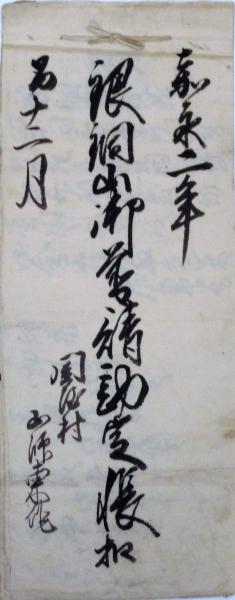 嘉永二年
銀銅山御普請勘定帳扣
酉十二月
関谷村
山師 栄作